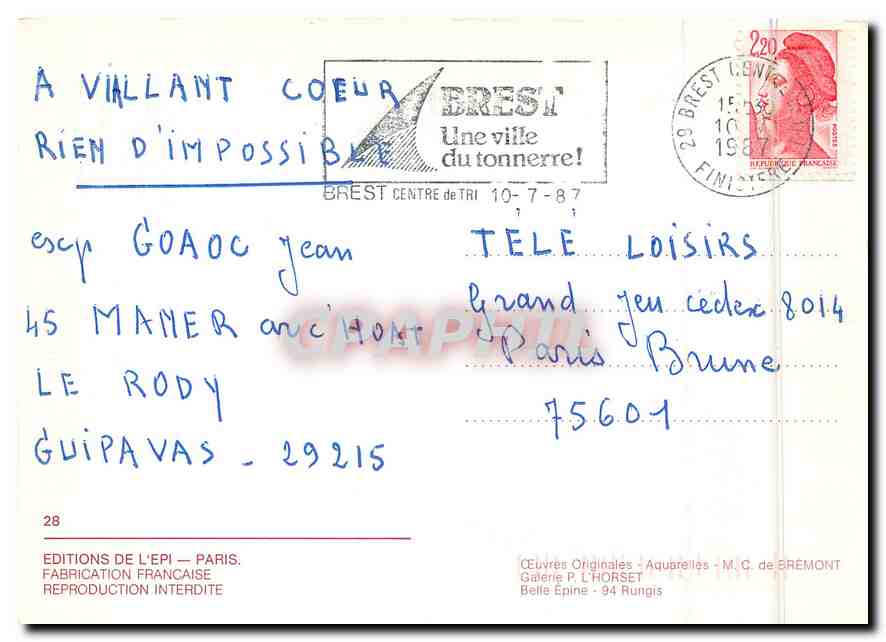 A VAILLANT COEUR
RIEN D'IMPOSSIBLE
BREST
Une ville
du tonnerre!
BREST CENTRE de TRI 10-7-87
29 BREST CENTRE
10
1987
FINISTERE
2,20
POSTES
REPUBLIQUE FRANÇAISE
exp GOAOC Jean
45 MANER arc'HOAT
LE RODY
GUIPAVAS - 29215
TÉLÉ LOISIRS
Grand Jeu cédex 8014
Paris Brune
75601
CPAPHIL
28
EDITIONS DE L'EPI — PARIS.
FABRICATION FRANÇAISE
REPRODUCTION INTERDITE
Œuvres Originales - Aquarelles - M. C. de BRÉMONT
Galerie P. L'HORSET
Belle Épine - 94 Rungis